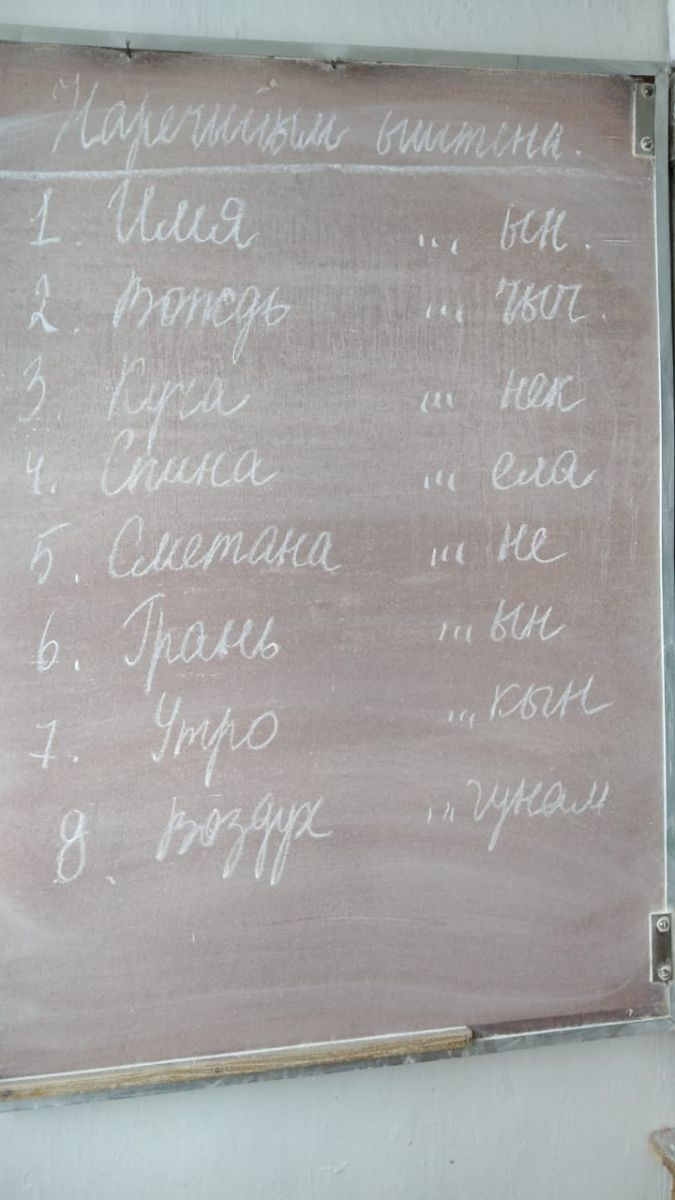 Наречийым ыштена.
1. Имя ... ын.
2. Вождь ... чыч.
3. Куча ... нек
4. Спина ... ела
5. Сметана ... не
6. Грань ... ын
7. Утро ... кын
8. Воздух ... гунам